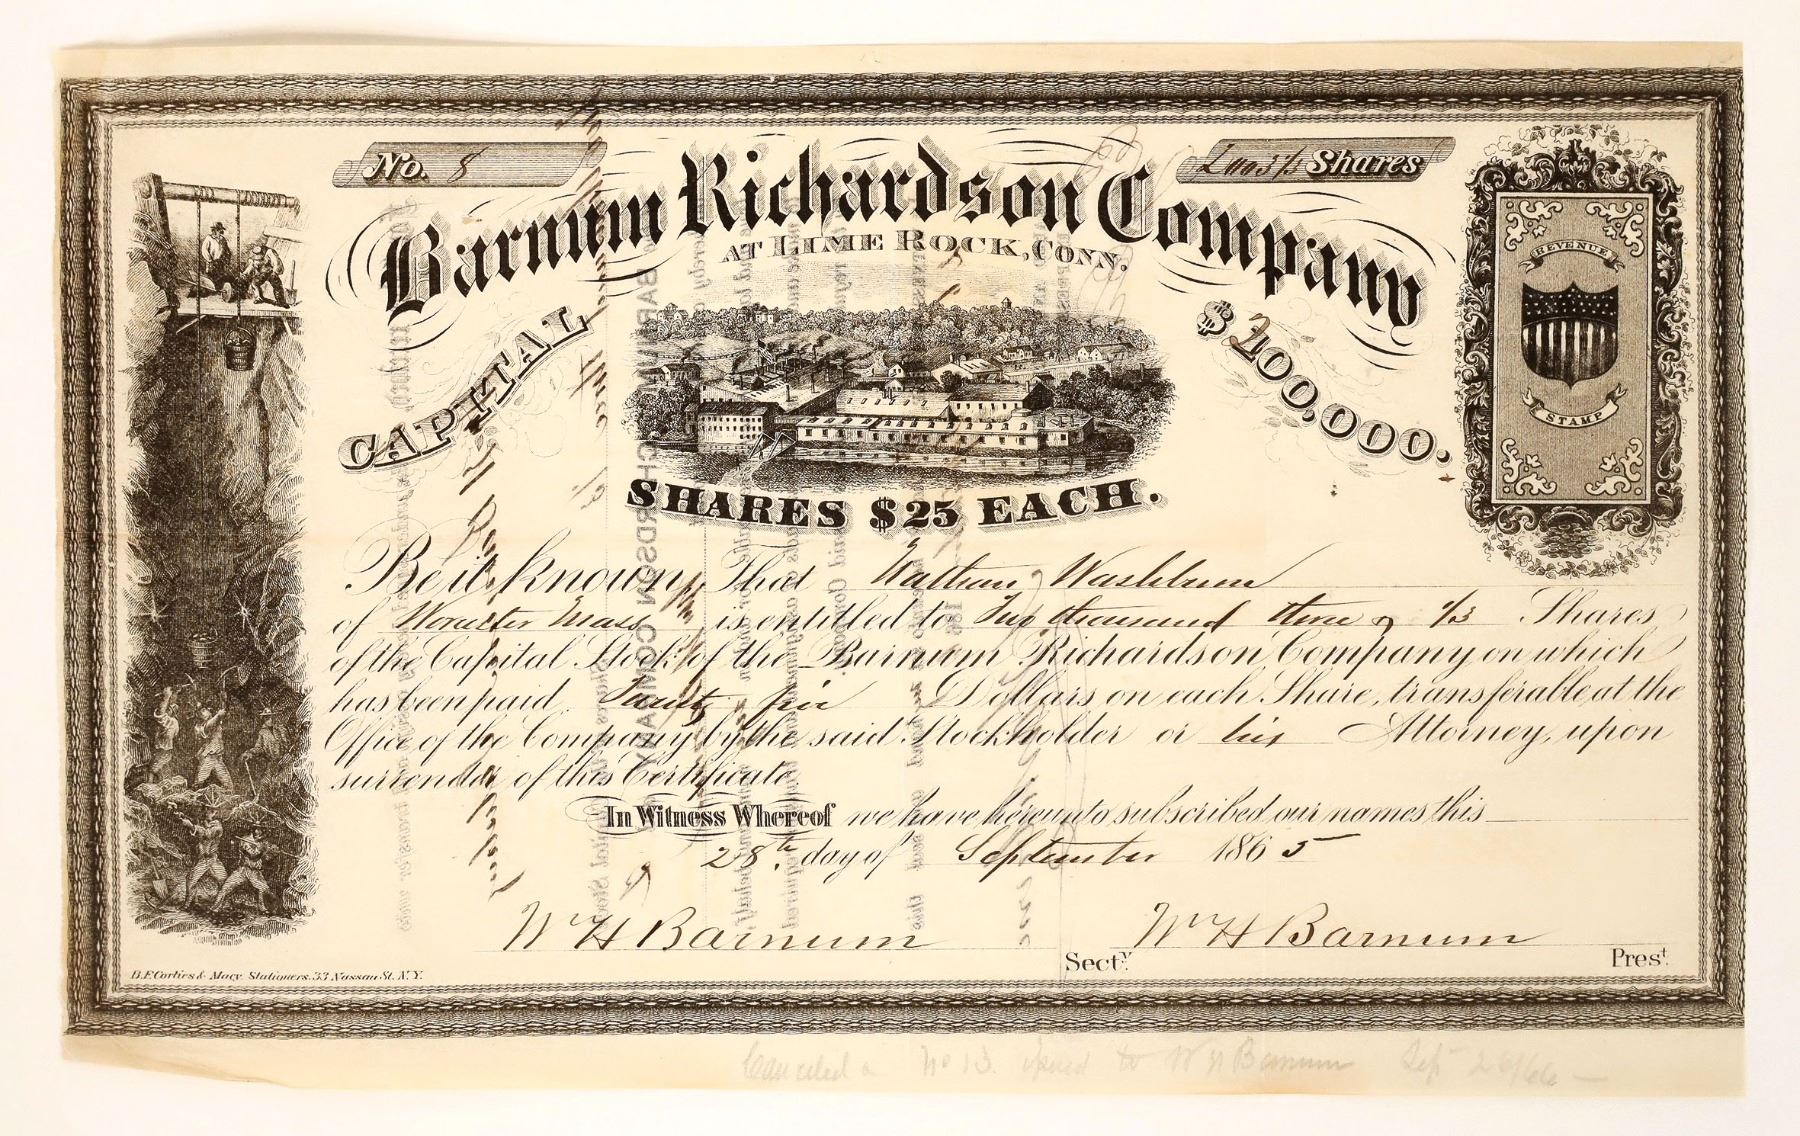 No. 8
2003⅓ Shares
Barnum Richardson Company
AT LIME ROCK, CONN.
CAPITAL
$200,000.
REVENUE
STAMP
SHARES $25 EACH.
Be it known, That Nathan Washburn
of Worcester Mass is entitled to Two thousand three & 1/3 Shares
of the Capital Stock of the Barnum Richardson Company on which
has been paid Twenty five Dollars on each Share, transferable at the
Office of the Company by the said Stockholder or his Attorney, upon
surrender of this Certificate
In Witness Whereof we have hereunto subscribed our names this
28th day of September 1865
Wm H Barnum Secty.
Wm H Barnum Prest.
B.F. Corlies & Macy, Stationers, 33 Nassau St. N.Y.
Canceled & No 13. issued to W H Barnum Sept 26/66